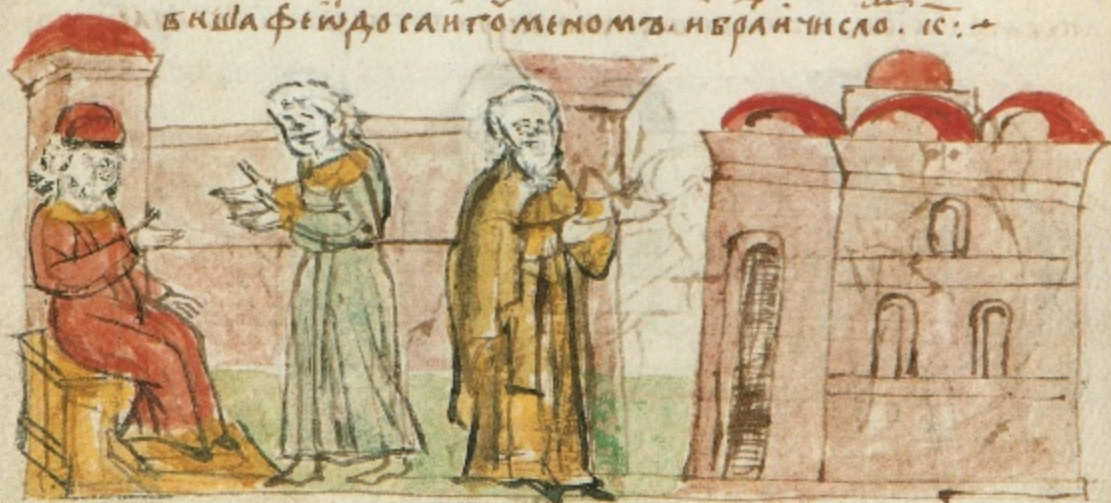 виша феѡдоса игоменомъ. и браи число. к҃: ~